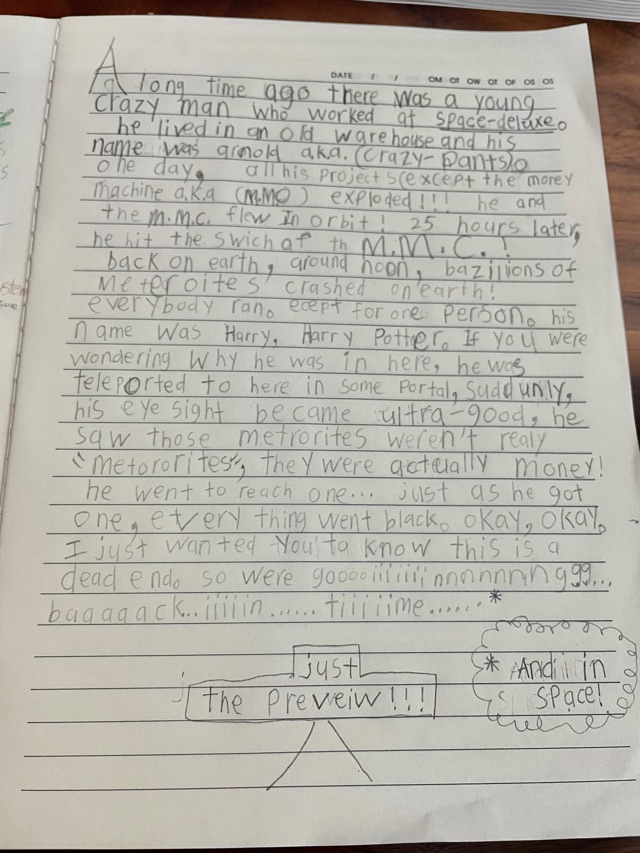 DATE / / OM OT OW OT OF OS OS
A long time ago there was a young
crazy man who worked at space-deluxe.
he lived in an old warehouse and his
name was arnold a.k.a. (crazy-pants).
one day, all his projects (except the money
machine a.k.a (M.M.C) exploded!!! he and
the m.m.c. flew in orbit! 25 hours later,
he hit the swich of th M.M.C.!
back on earth, around noon, bazillions of
meteroites crashed on earth!
everybody ran. ecept for one person. his
name was Harry, Harry Potter. If you were
wondering why he was in here, he was
teleported to here in some portal, suddunly,
his eye sight became ultra-good, he
saw those metrorites weren't realy
"metororites", they were actually money!
he went to reach one... just as he got
one, every thing went black. okay, okay.
I just wanted you to know this is a
dead end. so were gooooiiiiiiinnnnnnnggg...
bagaaack..iiiiiin...... tiiiiiime...... *
just
the Preveiw!!!
* And in
space!